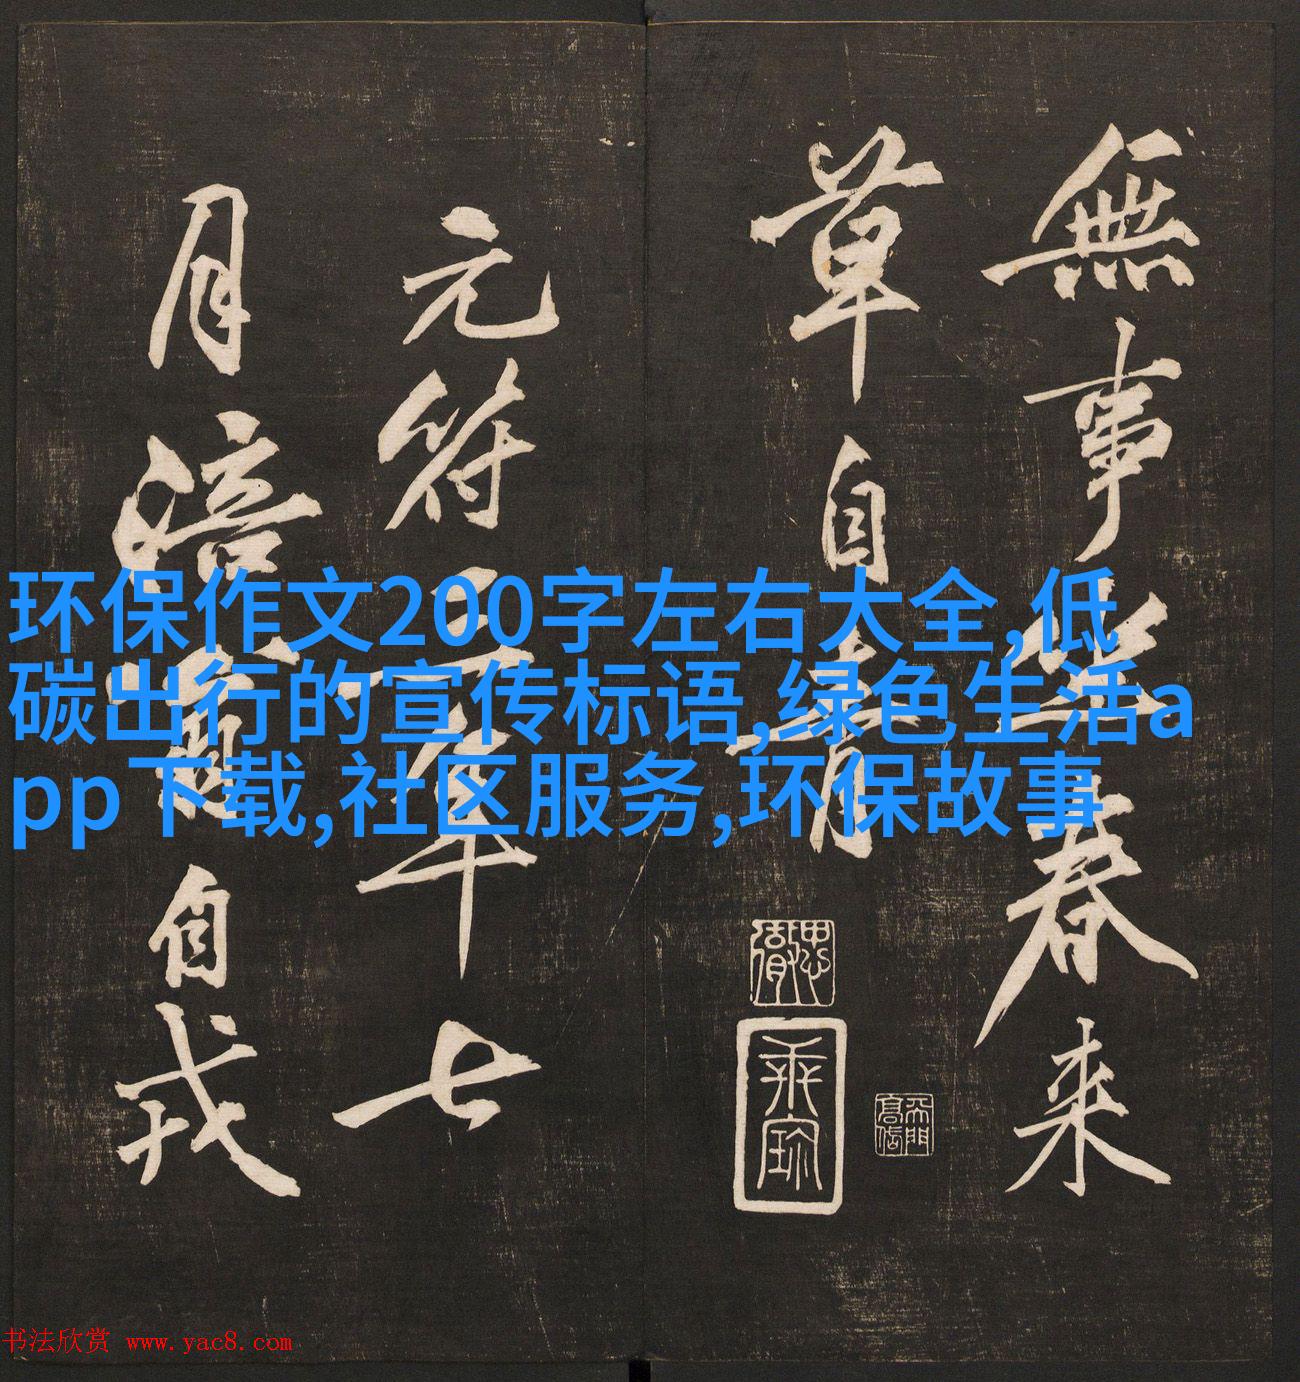 無事坐春来
草自青
元符三年七
月涪翁自戎
环保作文200字左右大全,低
碳出行的宣传标语,绿色生活a
pp下载,社区服务,环保故事
书法欣赏 www.yac8.com